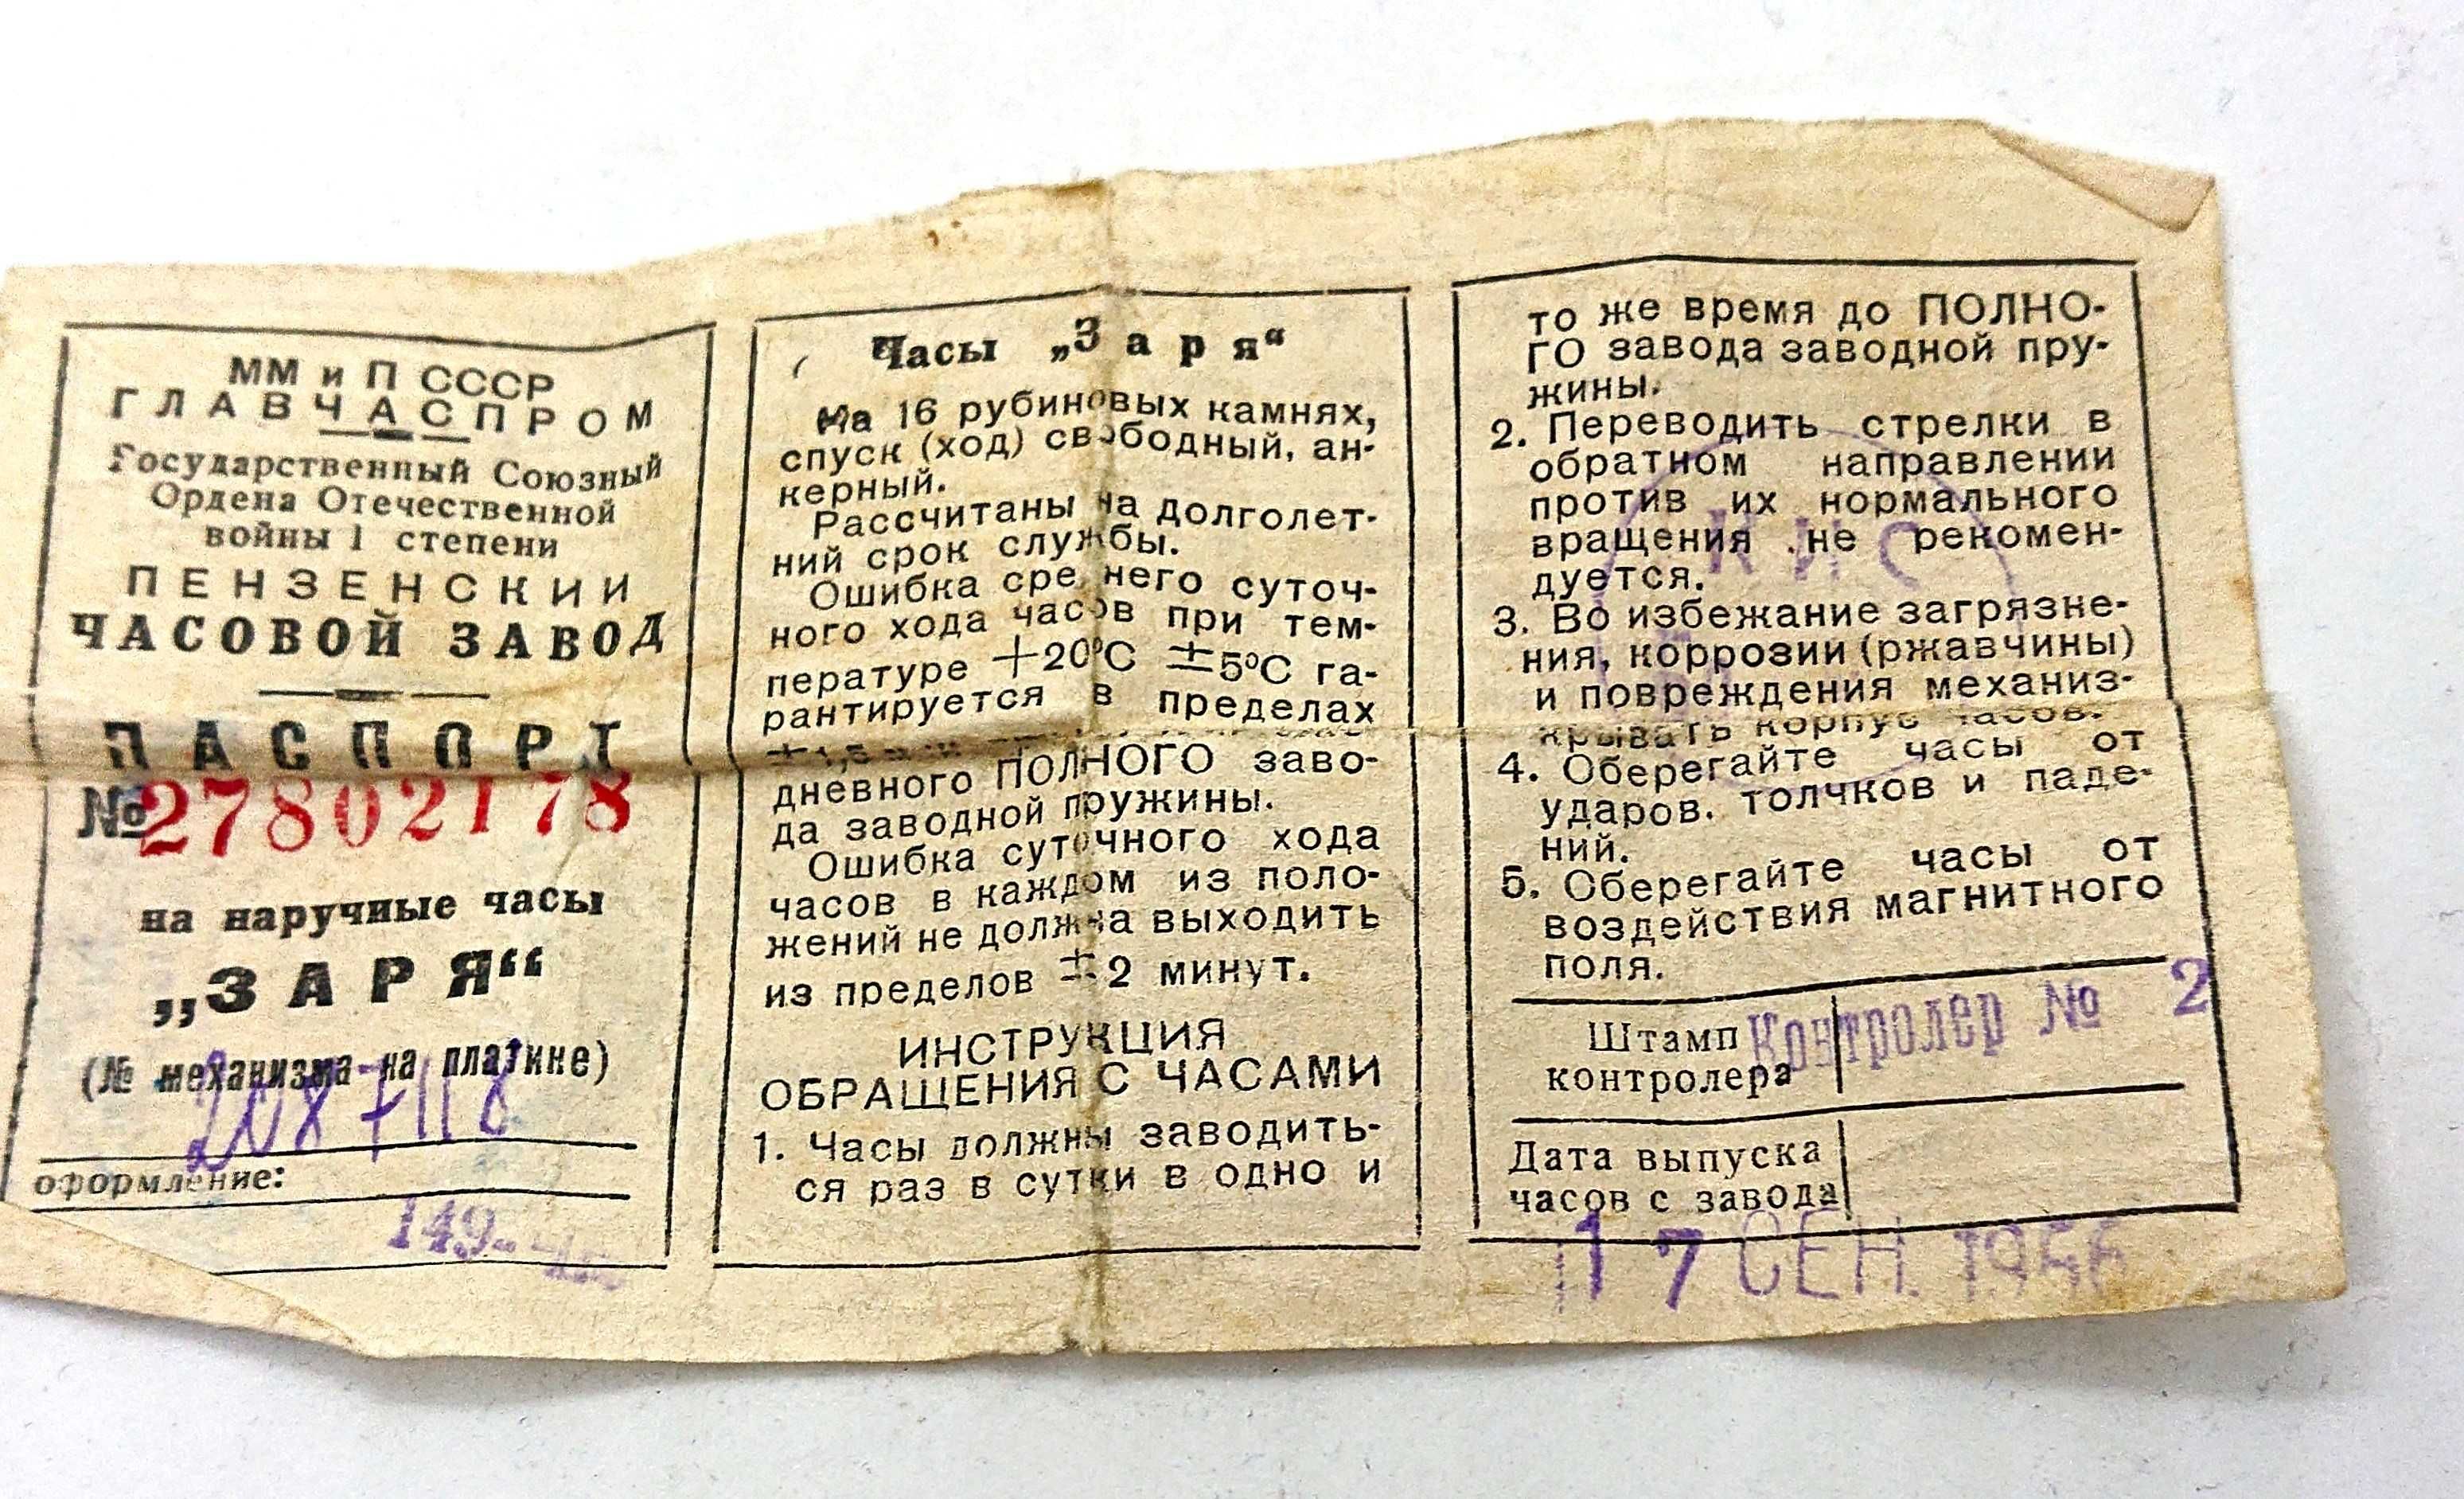 ММ и П СССР
ГЛАВЧАСПРОМ
Государственный Союзный
Ордена Отечественной
войны 1 степени
ПЕНЗЕНСКИЙ
ЧАСОВОЙ ЗАВОД
ПАСПОРТ
№27802178
на наручные часы
„ЗАРЯ“
(№ механизма на платине)
оформление:
149-
Часы „Заря“
На 16 рубиновых камнях,
спуск (ход) свободный, ан-
керный.
Рассчитаны на долголет-
ний срок службы.
Ошибка среднего суточ-
ного хода часов при тем-
пературе +20°С ±5°С га-
рантируется в пределах
дневного ПОЛНОГО заво-
да заводной пружины.
Ошибка суточного хода
часов в каждом из поло-
жений не должна выходить
из пределов ±2 минут.
ИНСТРУКЦИЯ
ОБРАЩЕНИЯ С ЧАСАМИ
1. Часы должны заводить-
ся раз в сутки в одно и
то же время до ПОЛНО-
ГО завода заводной пру-
жины.
2. Переводить стрелки в
обратном направлении
против их нормального
вращения не рекомен-
дуется.
3. Во избежание загрязне-
ния, коррозии (ржавчины)
и повреждения механиз-
крывать корпус часов.
4. Оберегайте часы от
ударов. толчков и паде-
ний.
5. Оберегайте часы от
воздействия магнитного
поля.
КИС
Штамп
контролера
Контролер № 2
Дата выпуска
часов с завода
17 СЕН.